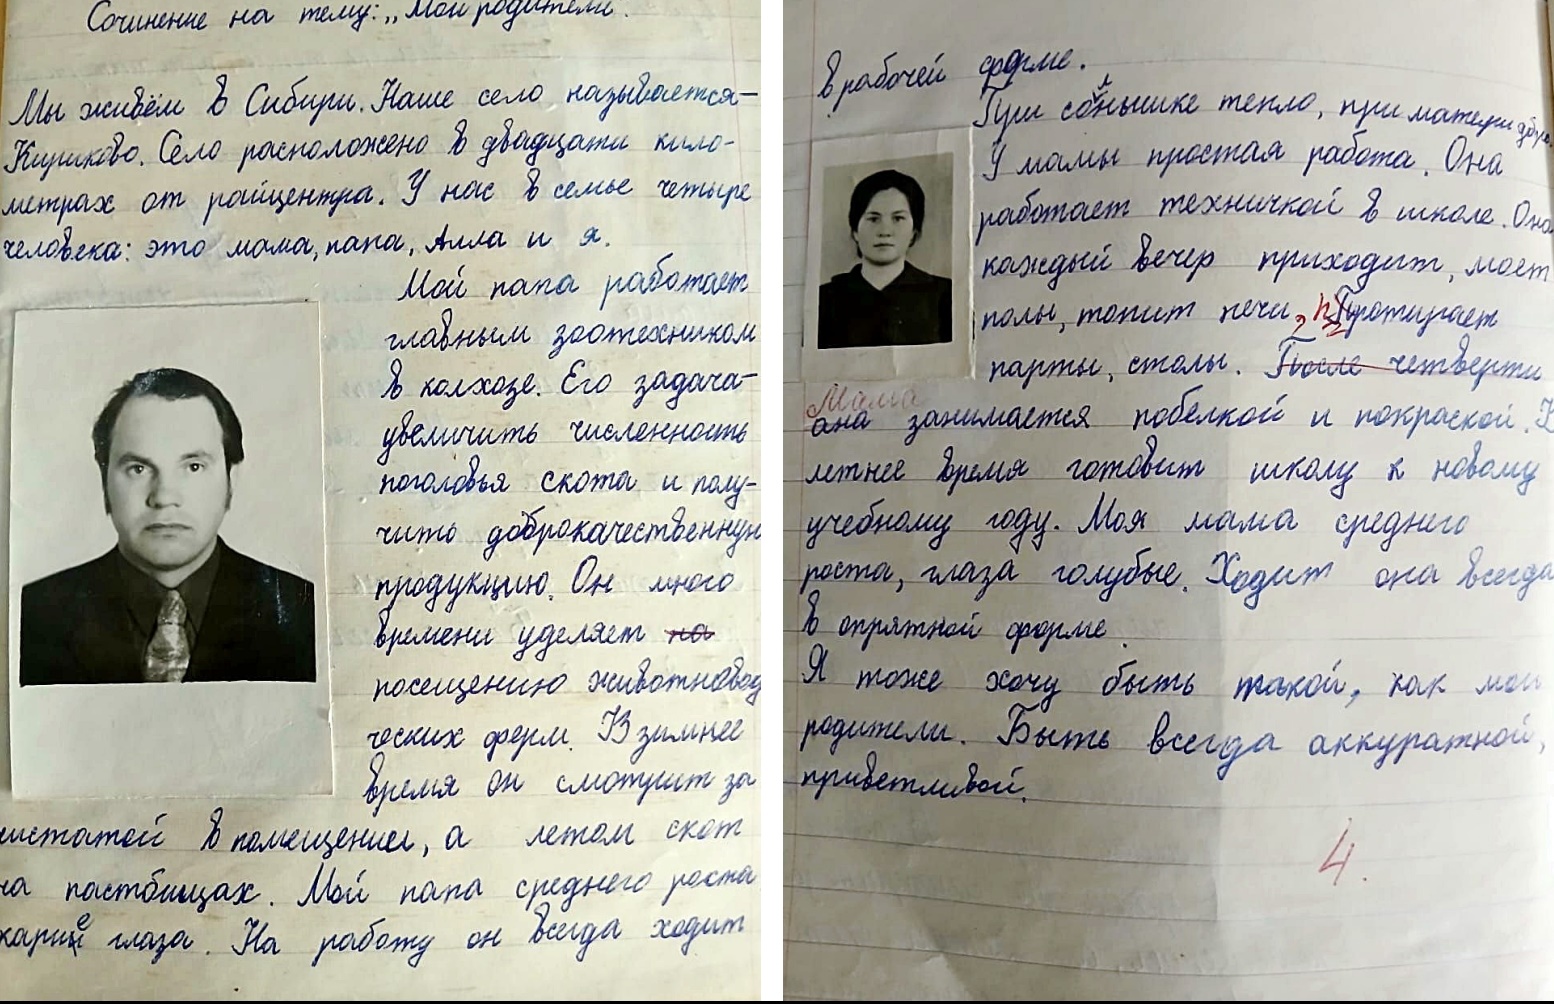 Сочинение на тему: „Мои родители".
Мы живём в Сибири. Наше село называется-
Кириково. Село расположено в двадцати кило-
метрах от райцентра. У нас в семье четыре
человека: это мама, папа, Алла и я.
Мой папа работает
главным зоотехником
в колхозе. Его задача-
увеличить численность
поголовья скота и полу-
чить доброкачественную
продукцию. Он много
времени уделяет на
посещению животновод
ческих ферм. В зимнее
время он смотрит за
чистотой в помещении, а летом скот
на пастбищах. Мой папа среднего роста
карие глаза. На работу он всегда ходит
в рабочей форме.
При солнышке тепло, при матери добро.
У мамы простая работа. Она
работает техничкой в школе. Она
каждый вечер приходит, моет
полы, топит печи, протирает
парты, столы. После четверти
Мама
она занимается побелкой и покраской. В
летнее время готовит школу к новому
учебному году. Моя мама среднего
роста, глаза голубые. Ходит она всегда
в опрятной форме.
Я тоже хочу быть такой, как мои
родители. Быть всегда аккуратной,
приветливой.
4.